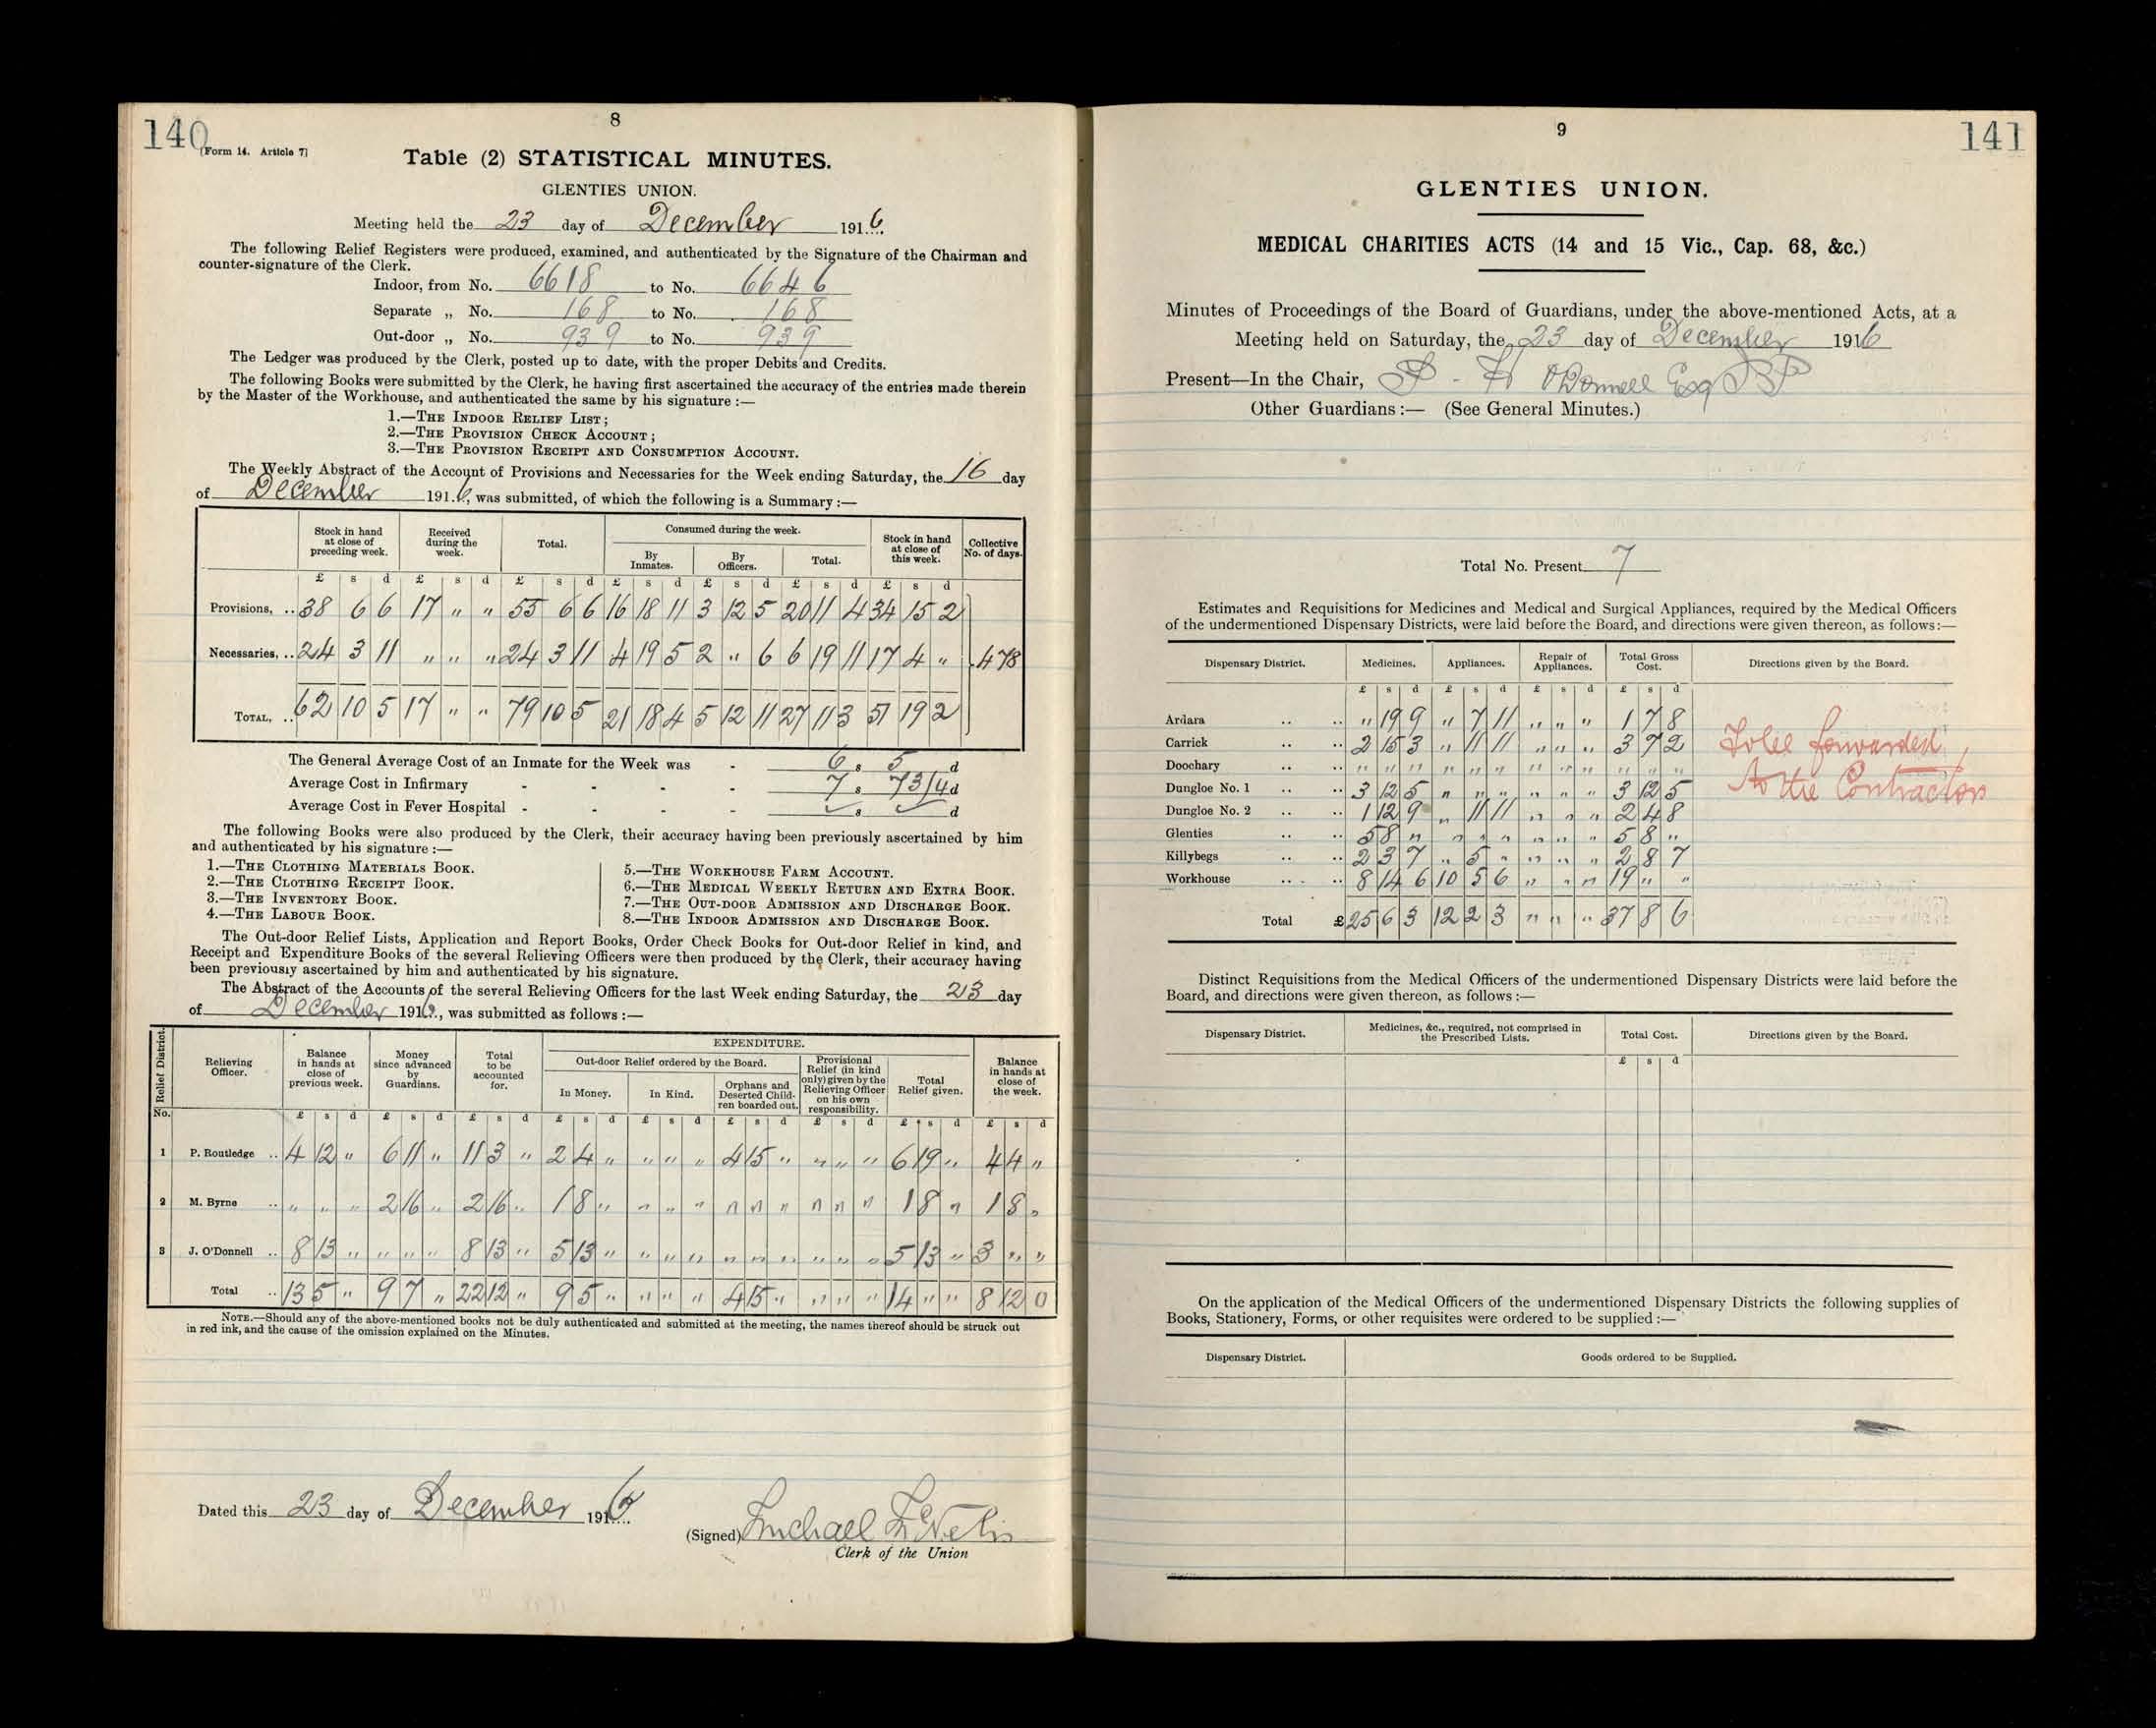 140
[Form 14. Article 7]
8
Table (2) STATISTICAL MINUTES.
GLENTIES UNION.
Meeting held the 23 day of December 1916.
The following Relief Registers were produced, examined, and authenticated by the Signature of the Chairman and
counter-signature of the Clerk.
Indoor, from No. 6618 to No. 6646
Separate „ No. 168 to No. 168
Out-door „ No. 939 to No. 939
The Ledger was produced by the Clerk, posted up to date, with the proper Debits and Credits.
The following Books were submitted by the Clerk, he having first ascertained the accuracy of the entries made therein
by the Master of the Workhouse, and authenticated the same by his signature :—
1.—THE INDOOR RELIEF LIST;
2.—THE PROVISION CHECK ACCOUNT;
3.—THE PROVISION RECEIPT AND CONSUMPTION ACCOUNT.
The Weekly Abstract of the Account of Provisions and Necessaries for the Week ending Saturday, the 16 day
of December 1916, was submitted, of which the following is a Summary :—
Stock in hand at close of preceding week. Received during the week. Total. Consumed during the week. Stock in hand at close of this week. Collective No. of days.
By Inmates. By Officers. Total.
£ s d £ s d £ s d £ s d £ s d £ s d £ s d
Provisions, .. 38 6 6 17 " " 55 6 6 16 18 11 3 12 5 20 11 4 34 15 2
Necessaries, .. 24 3 11 " " " 24 3 11 4 19 5 2 " 6 6 19 11 17 4 " 478
TOTAL, .. 62 10 5 17 " " 79 10 5 21 18 4 5 12 11 27 11 3 51 19 2
The General Average Cost of an Inmate for the Week was - 6 s 5 d
Average Cost in Infirmary - - - - 7 s 7 3/4 d
Average Cost in Fever Hospital - - - s d
The following Books were also produced by the Clerk, their accuracy having been previously ascertained by him
and authenticated by his signature :—
1.—THE CLOTHING MATERIALS BOOK.
2.—THE CLOTHING RECEIPT BOOK.
3.—THE INVENTORY BOOK.
4.—THE LABOUR BOOK.
5.—THE WORKHOUSE FARM ACCOUNT.
6.—THE MEDICAL WEEKLY RETURN AND EXTRA BOOK.
7.—THE OUT-DOOR ADMISSION AND DISCHARGE BOOK.
8.—THE INDOOR ADMISSION AND DISCHARGE BOOK.
The Out-door Relief Lists, Application and Report Books, Order Check Books for Out-door Relief in kind, and
Receipt and Expenditure Books of the several Relieving Officers were then produced by the Clerk, their accuracy having
been previously ascertained by him and authenticated by his signature.
The Abstract of the Accounts of the several Relieving Officers for the last Week ending Saturday, the 23 day
of December 1916., was submitted as follows :—
Relief District. No.
Relieving Officer.
Balance in hands at close of previous week.
Money since advanced by Guardians.
Total to be accounted for.
EXPENDITURE.
Out-door Relief ordered by the Board.
In Money. In Kind. Orphans and Deserted Children boarded out.
Provisional Relief (in kind only) given by the Relieving Officer on his own responsibility.
Total Relief given.
Balance in hands at close of the week.
£ s d £ s d £ s d £ s d £ s d £ s d £ s d £ s d £ s d
1 P. Routledge .. 4 12 " 6 11 " 11 3 " 2 4 " " " " 4 15 " " " " 6 19 " 4 4 "
2 M. Byrne .. " " " 2 16 " 2 16 " 1 8 " " " " " " " " " " 1 8 " 1 8 "
3 J. O'Donnell .. 8 13 " " " " 8 13 " 5 13 " " " " " " " " " " 5 13 " 3 " "
Total .. 13 5 " 9 7 " 22 12 " 9 5 " " " " 4 15 " " " " 14 " " 8 12 0
NOTE.—Should any of the above-mentioned books not be duly authenticated and submitted at the meeting, the names thereof should be struck out
in red ink, and the cause of the omission explained on the Minutes.
Dated this 23 day of December 1916.
(Signed) Michael
Clerk of the Union
9
141
GLENTIES UNION.
MEDICAL CHARITIES ACTS (14 and 15 Vic., Cap. 68, &c.)
Minutes of Proceedings of the Board of Guardians, under the above-mentioned Acts, at a
Meeting held on Saturday, the 23 day of December 1916
Present—In the Chair, O'Donnell Esq
Other Guardians :— (See General Minutes.)
Total No. Present 7
Estimates and Requisitions for Medicines and Medical and Surgical Appliances, required by the Medical Officers
of the undermentioned Dispensary Districts, were laid before the Board, and directions were given thereon, as follows:—
Dispensary District. Medicines. Appliances. Repair of Appliances. Total Gross Cost. Directions given by the Board.
£ s d £ s d £ s d £ s d
Ardara .. .. " 19 9 " 7 11 " " " 1 7 8
Carrick .. .. 2 15 3 " 11 11 " " " 3 7 2
Doochary .. .. " " " " " " " " " " " "
Dungloe No. 1 .. .. 3 12 5 " " " " " " 3 12 5
Dungloe No. 2 .. .. 1 12 9 " 11 11 " " " 2 4 8
Glenties .. .. 5 8 " " " " " " " 5 8 "
Killybegs .. .. 2 3 7 " 5 " " " " 2 8 7
Workhouse .. .. 8 14 6 10 5 6 " " " 19 " "
Total £ 25 6 3 12 2 3 " " " 37 8 6
To be forwarded
to the Contractors
Distinct Requisitions from the Medical Officers of the undermentioned Dispensary Districts were laid before the
Board, and directions were given thereon, as follows :—
Dispensary District. Medicines, &c., required, not comprised in the Prescribed Lists. Total Cost. Directions given by the Board.
£ s d
On the application of the Medical Officers of the undermentioned Dispensary Districts the following supplies of
Books, Stationery, Forms, or other requisites were ordered to be supplied :—
Dispensary District. Goods ordered to be Supplied.